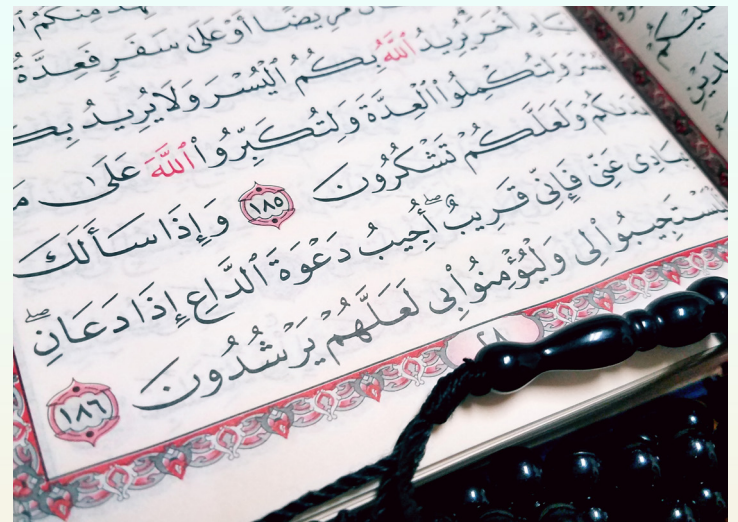 مَّرِيضًا أَوْ عَلَىٰ سَفَرٍ فَعِدَّةٌ
أُخَرَ يُرِيدُ ٱللَّهُ بِكُمُ ٱلْيُسْرَ وَلَا يُرِيدُ
وَلِتُكْمِلُوا۟ ٱلْعِدَّةَ وَلِتُكَبِّرُوا۟ ٱللَّهَ عَلَىٰ
وَلَعَلَّكُمْ تَشْكُرُونَ ١٨٥ وَإِذَا سَأَلَكَ
عَنِّى فَإِنِّى قَرِيبٌ ۖ أُجِيبُ دَعْوَةَ ٱلدَّاعِ إِذَا دَعَانِ ۖ
لِى وَلْيُؤْمِنُوا۟ بِى لَعَلَّهُمْ يَرْشُدُونَ ١٨٦
٢٨